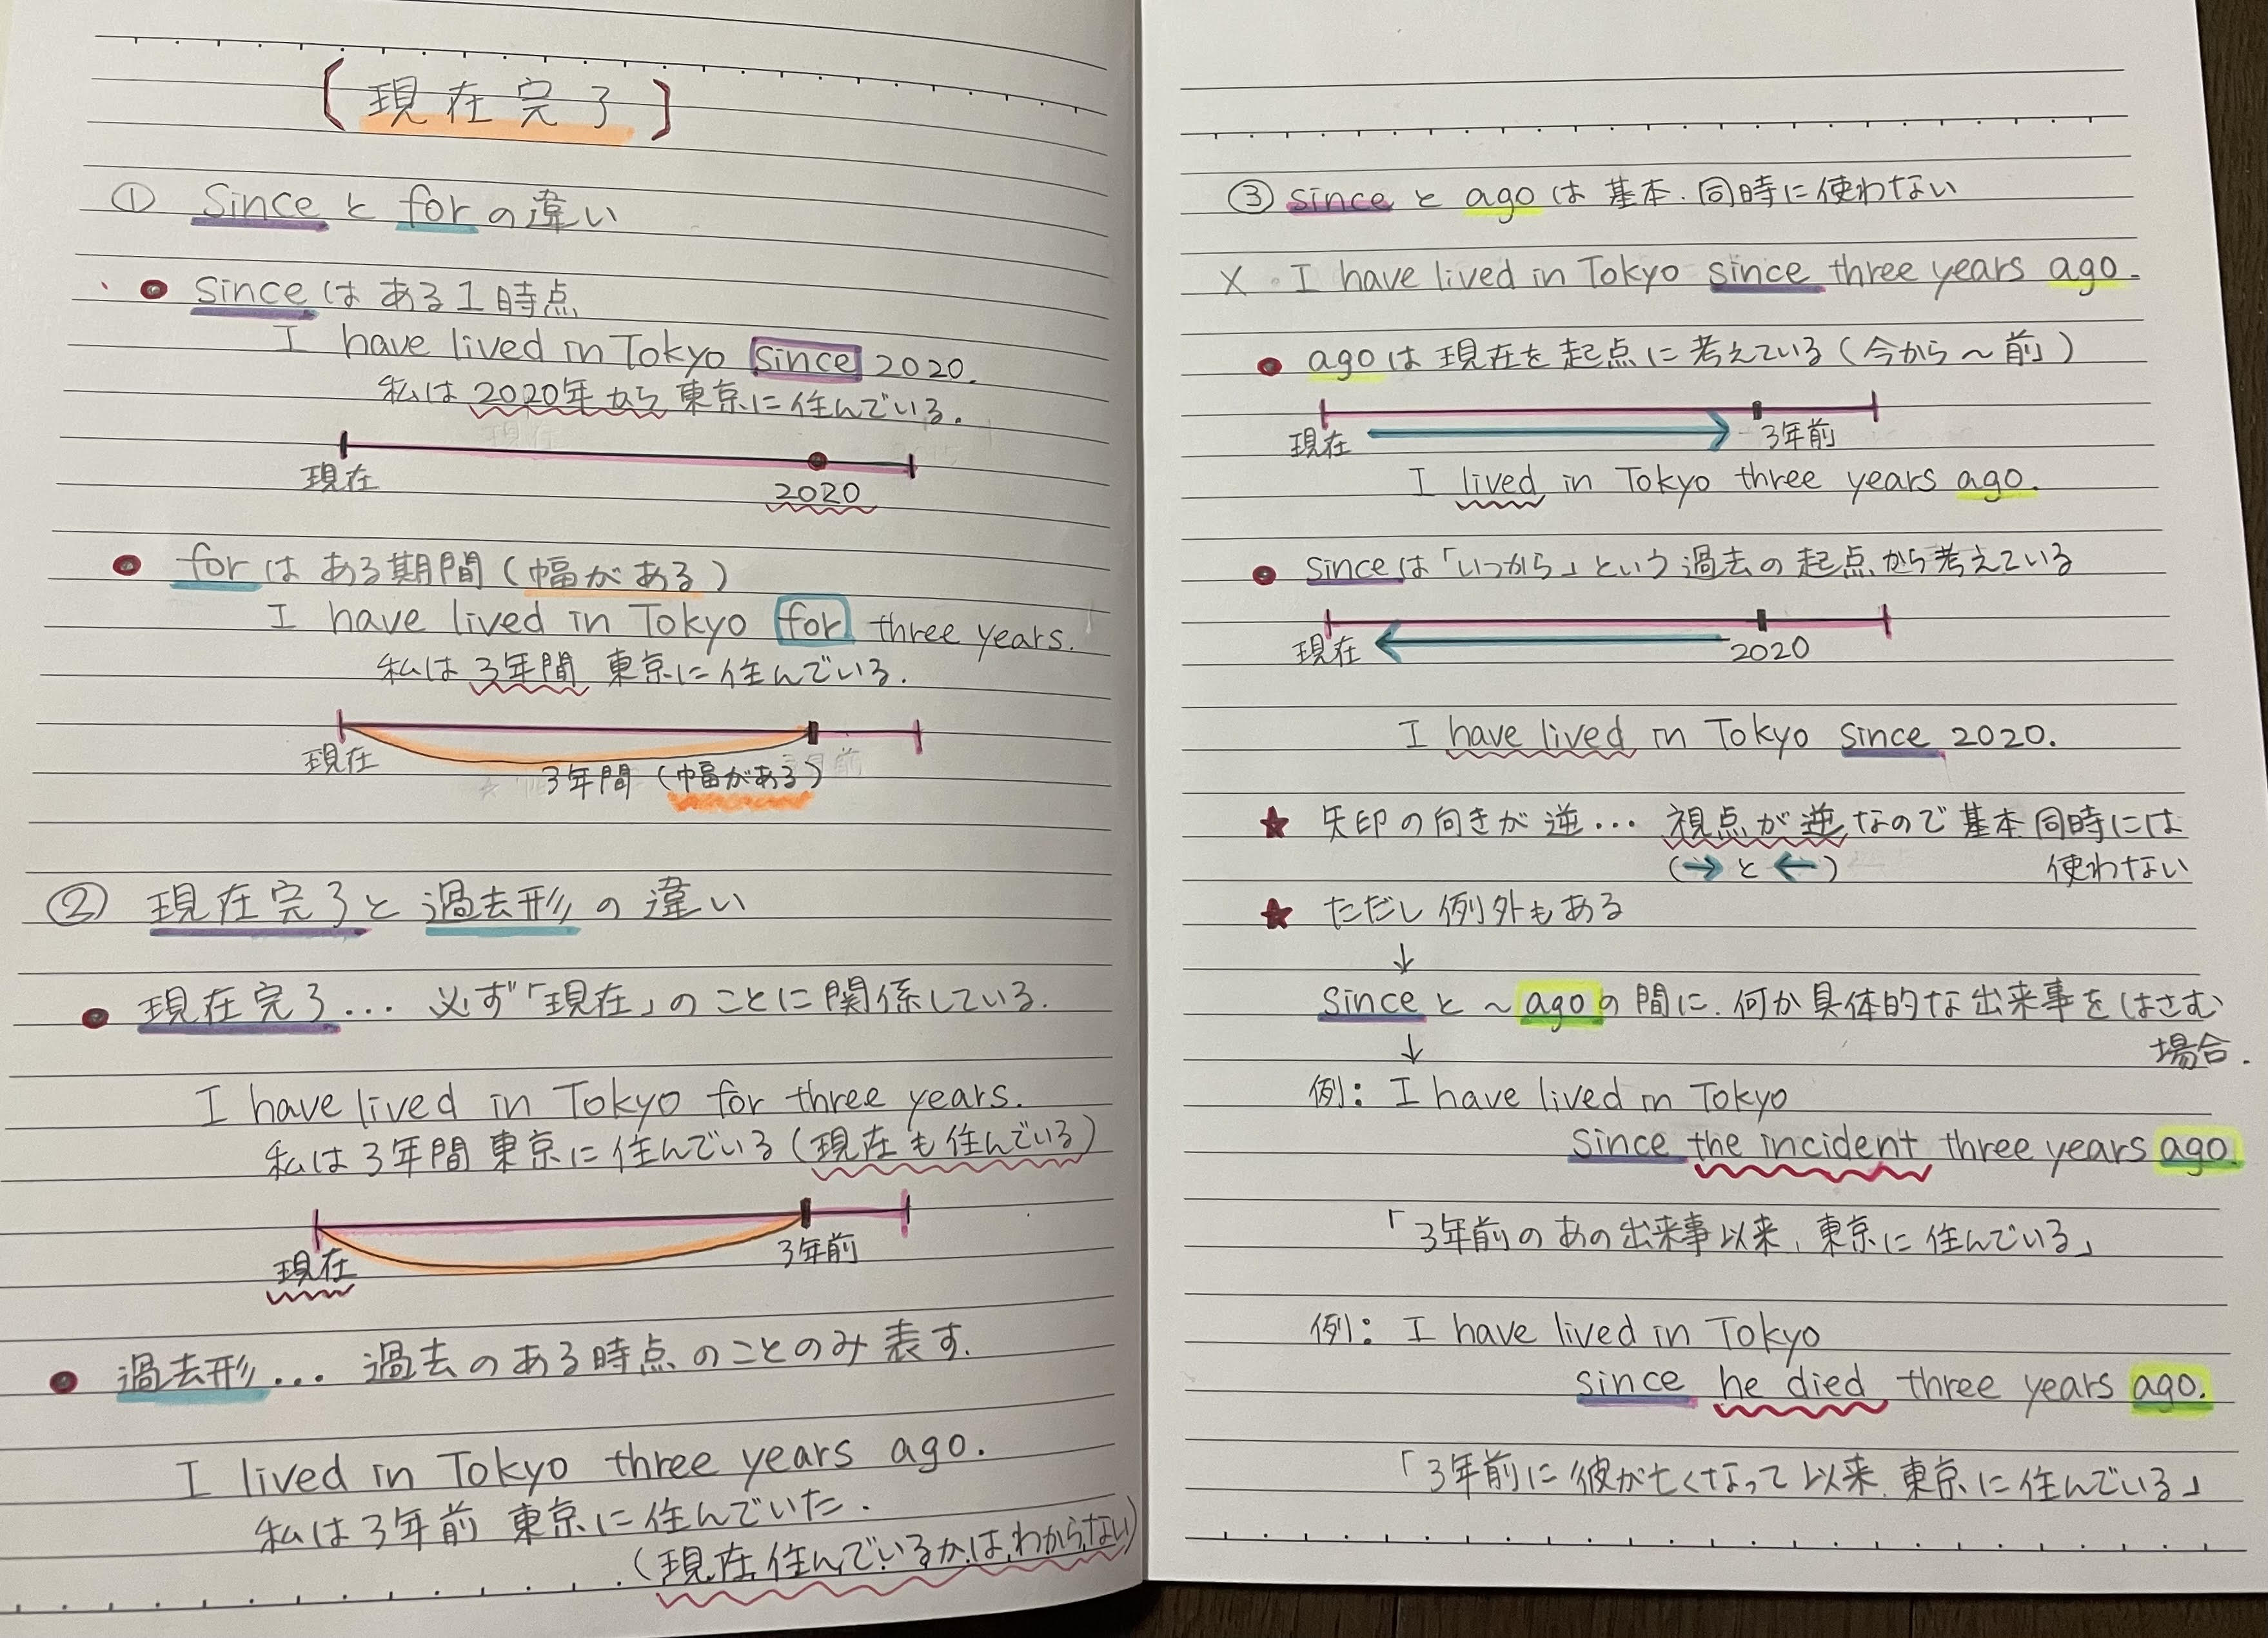 ［現在完了］
① Sinceとforの違い
• Sinceはある1時点
I have lived in Tokyo since 2020.
私は2020年から東京に住んでいる.
現在
2020
• forはある期間(幅がある)
I have lived in Tokyo for three years.
私は3年間 東京に住んでいる.
現在
3年間 (幅がある)
② 現在完了と過去形の違い
• 現在完了... 必ず「現在」のことに関係している.
I have lived in Tokyo for three years.
私は3年間 東京に住んでいる(現在も住んでいる)
3年前
現在
• 過去形... 過去のある時点のことのみ表す.
I lived in Tokyo three years ago.
私は3年前 東京に住んでいた.
(現在住んでいるかはわからない)
③ sinceとagoは基本、同時に使わない
× I have lived in Tokyo since three years ago.
• agoは現在を起点に考えている(今から～前)
現在 → 3年前
I lived in Tokyo three years ago.
• sinceは「いつから」という過去の起点から考えている
現在 ← 2020
I have lived in Tokyo since 2020.
★ 矢印の向きが逆... 視点が逆なので基本同時には
(→と←) 使わない
★ ただし例外もある
↓
Sinceと～agoの間に、何か具体的な出来事をはさむ
↓ 場合.
例: I have lived in Tokyo
since the incident three years ago.
「3年前のあの出来事以来、東京に住んでいる」
例: I have lived in Tokyo
since he died three years ago.
「3年前に彼が亡くなって以来、東京に住んでいる」